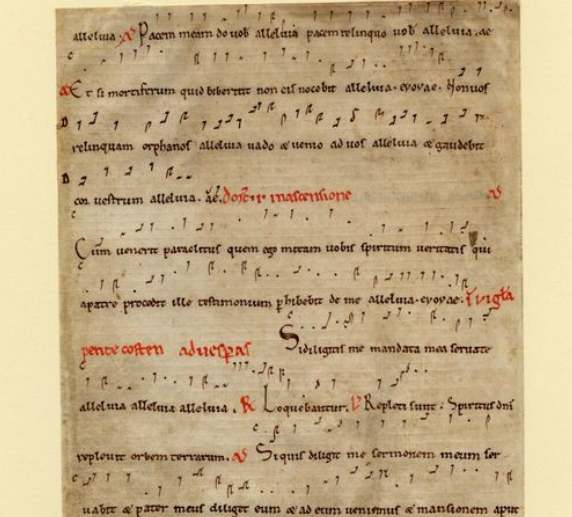 alleluia. Pacem meam do vob alleluia pacem relinquo vob alleluia. ae
Et si mortiferum quid biberint non eis nocebit alleluia. evovae. Non vos
relinquam orphanos alleluia vado & venio ad vos alleluia & gaudebit
cor vestrum alleluia. ascensione
Cum venerit paraclitus quem ego mittam vobis spiritum veritatis qui
a patre procedit ille testimonium phibebit de me alleluia. evovae. vigła
pentecosten aduespas
Si diligitis me mandata mea servate
alleluia alleluia alleluia. R Loquebantur. V Repleti sunt. Spiritus dni
replevit orbem terrarum. Siquis diligit me sermonem meum ser
vabit & pater meus diliget eum & ad eum veniemus & mansionem aput